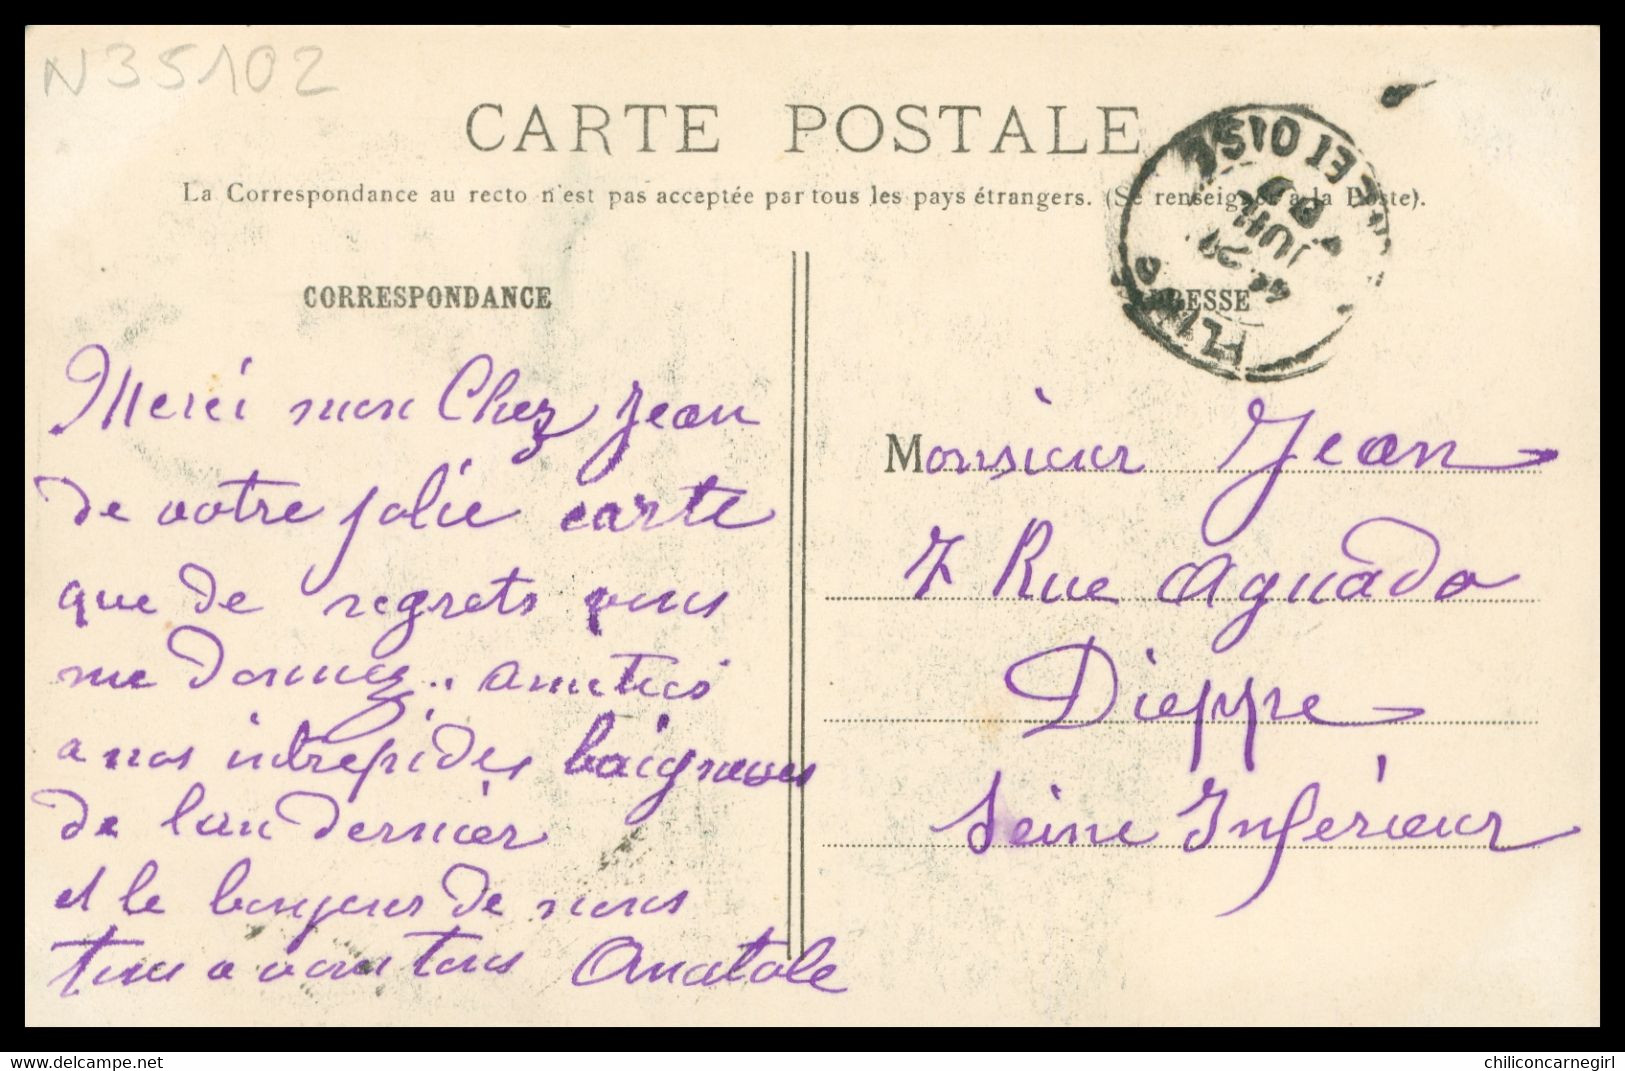 N35102
CARTE POSTALE
La Correspondance au recto n'est pas acceptée par tous les pays étrangers. (Se renseigner à la Poste).
CORRESPONDANCE
ADRESSE
Merci mon Chez Jean
de votre jolie carte
que de regrets vous
me donnez..
a nos intrepides baigneuses
de l'an dernier
et le bonjour de nous
tous a vous tous Anatole
Monsieur Jean
7 Rue Aguado
Dieppe
Seine Inférieur
SEINE ET OISE
JUIL
chiliconcarnegirl
delcampe.net